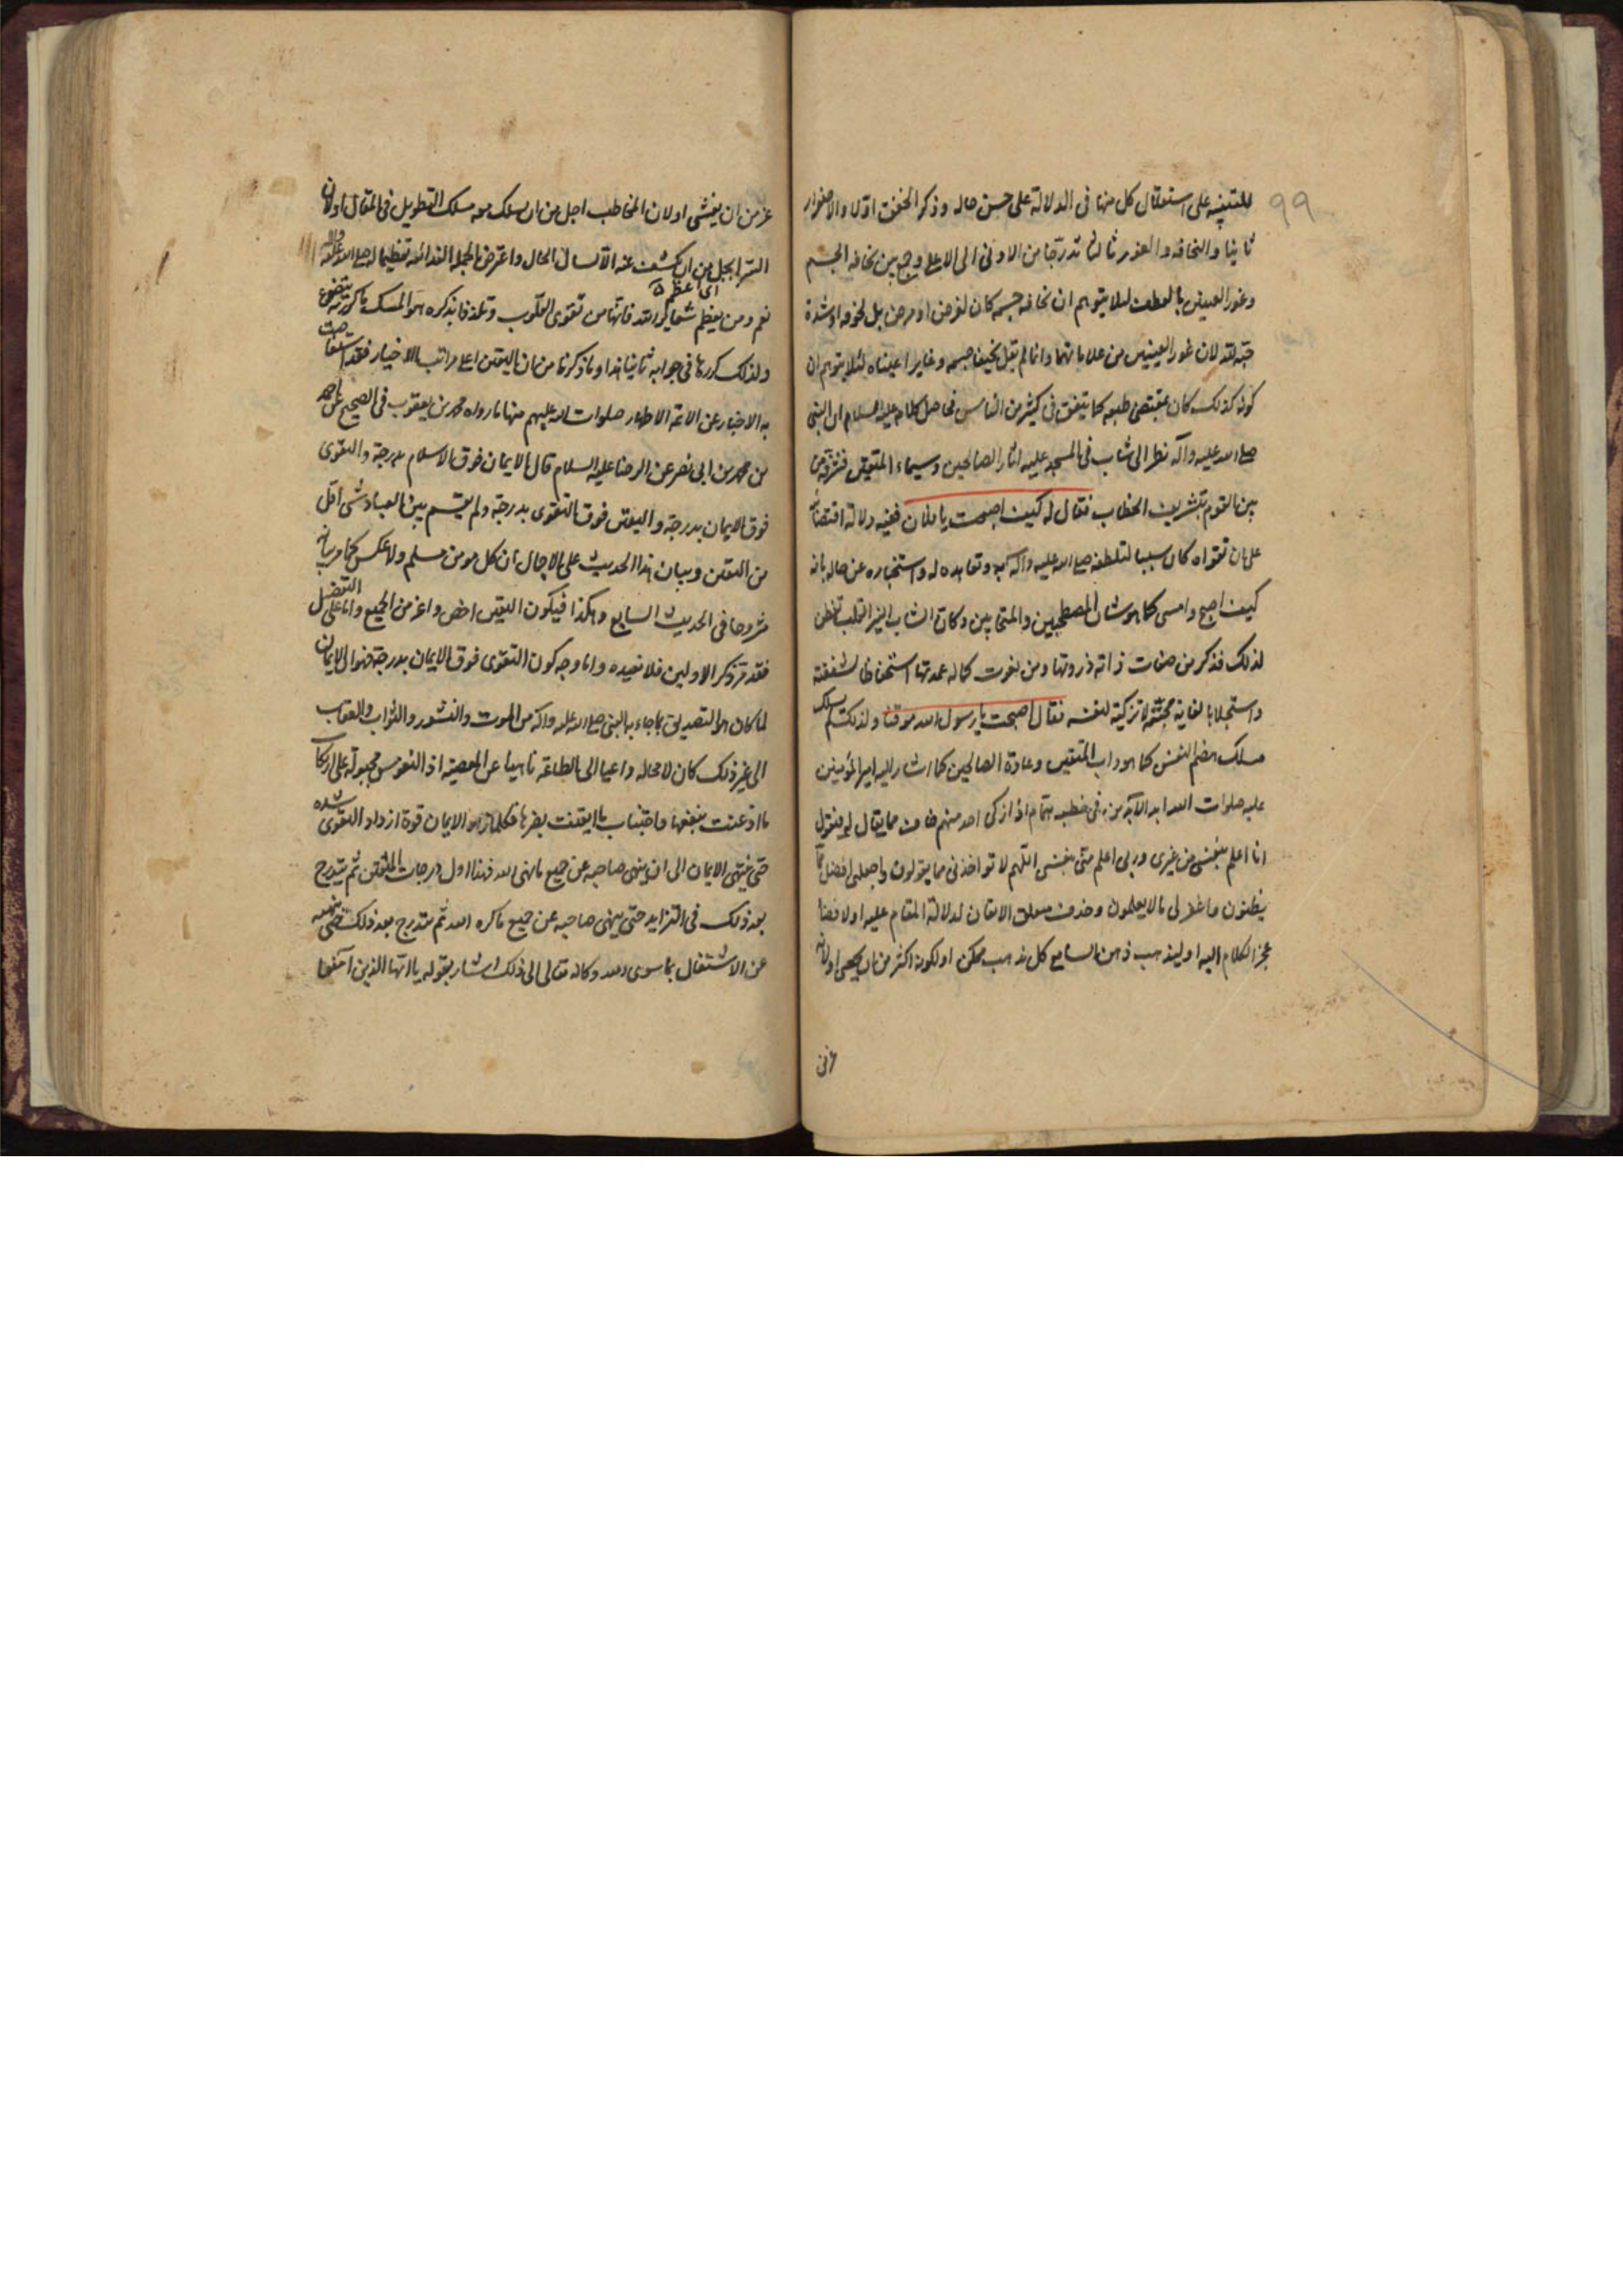 ٩٩
للتنبيه على استقلال كل منها فى الدلالة على حسن حاله وذكر الخفق اوّلا والاصفرار
ثانيا والنحافه والغور ثالثا تدرّجا من الادنى الى الاعلى وجمع بين نحافه الجسم
وغور العينين بالعطف لئلا يتوهم ان نحافه جسمه كان لغرض او مرض بل لخوفه او شدة
حبّه لله لان غور العينين من علاماتهما وانما لم يقل نحيفا جسمه وغايرا عيناه لئلا يتوهم ان
كونه كذلك كان بمقتضى طبعه كما يتفق فى كثير من الناس فحاصل كلامه عليه السلام ان النبى
صلى الله عليه وآله نظر الى شاب فى المسجد عليه اثار الصالحين وسيماء المتقين فشرّفه من
بين القوم بتشريف الخطاب فقال له كيف اصبحت يا فلان ففيه دلالة اقتضائية
على ان تقواه كان سببا لتلطفه صلى الله عليه واله به وتعاهده له واستخباره عن حاله بانه
كيف اصبح وامسى كما هو شان المصطحبين والمتحابين وكان الشاب النير القلب تفطن
لذلك فذكر من صفات ذاته ذروتها ومن نعوت كماله عمدتها استحفاظا لشفقته
واستجلابا لغاية محبّته لا تزكية لنفسه فقال اصبحت يا رسول الله موقنا ولذلك لم يسلك
مسلك هضم النفس كما هو داب المتقين وعادة الصالحين كما اشار اليه امير المؤمنين
عليه صلوات الله ابد الآبدين فى خطبه همّام اذا زكى احد منهم خاف مما يقال له فيقول
انا اعلم بنفسى من غيرى وربى اعلم منّى بنفسى اللّهم لا تواخذنى مما يقولون واجعلنى افضل ممّا
يظنون واغفر لى ما لا يعلمون وحذف متعلق الايقان لدلالة المقام عليه او لافضا
عجز الكلام اليه او ليذهب ذهن السامع كل مذهب ممكن او لكونه اكثر من ان يحصى او لانه
عز من ان يفشى او لان المخاطب اجل من ان يسلك معه مسلك التطويل فى المقال او لان
السرّ اجل من ان يكشف عنه الا لسان الحال واعترض بالجملة الندائيه تعظيما له صلى الله عليه واله
اى اعظم
نعم ومن يعظم شعائر الله فانها من تقوى القلوب وتلذذا بذكره هو المسك ما كررته يتضوع
ولذلك كررها فى جوابه ثانيا هذا وما ذكرنا من ان اليقين اعلى مراتب الاخيار فقد استفاضت
به الاخبار عن الائمة الاطهار صلوات الله عليهم منها ما رواه محمد بن يعقوب فى الصحيح عن احمد
بن محمد بن ابى نصر عن الرضا عليه السلام قال الايمان فوق الاسلام بدرجة والتقوى
فوق الايمان بدرجة واليقين فوق التقوى بدرجة ولم يقسم بين العباد شى اقل
من اليقين وبيان هذا الحديث على الاجمال ان كل مومن مسلم ولا عكس كما مر بيانه
مشروحا فى الحديث السابع وهكذا فيكون اليقين اخص واعز من الجميع واما على التفصيل
فقد مرّ ذكر الاولين فلا نعيده واما وجه كون التقوى فوق الايمان بدرجة فهو ان الايمان
لما كان هو التصديق بما جاء به النبى صلى الله عليه واله من الموت والنشور والثواب والعقاب
الى غير ذلك كان لا محالة داعيا الى الطاعة ناهيا عن المعصية اذ النفوس مجبولة على ارتكاب
ما اذعنت بنفعها واجتناب ما ايقنت بضرها فكلما زاد الايمان قوة ازداد التقوى شدة
حتى ينتهى الايمان الى ان ينهى صاحبه عن جميع ما نهى الله فهذا اول درجات المتقين ثم يتدرج
بعد ذلك فى التزايد حتى ينهى صاحبه عن جميع ما كره الله ثم يتدرج بعد ذلك حتى ينهيه
عن الاشتغال بما سوى الله وكانه تعالى الى ذلك اشار بقوله يا ايها الذين آمنوا
عز من